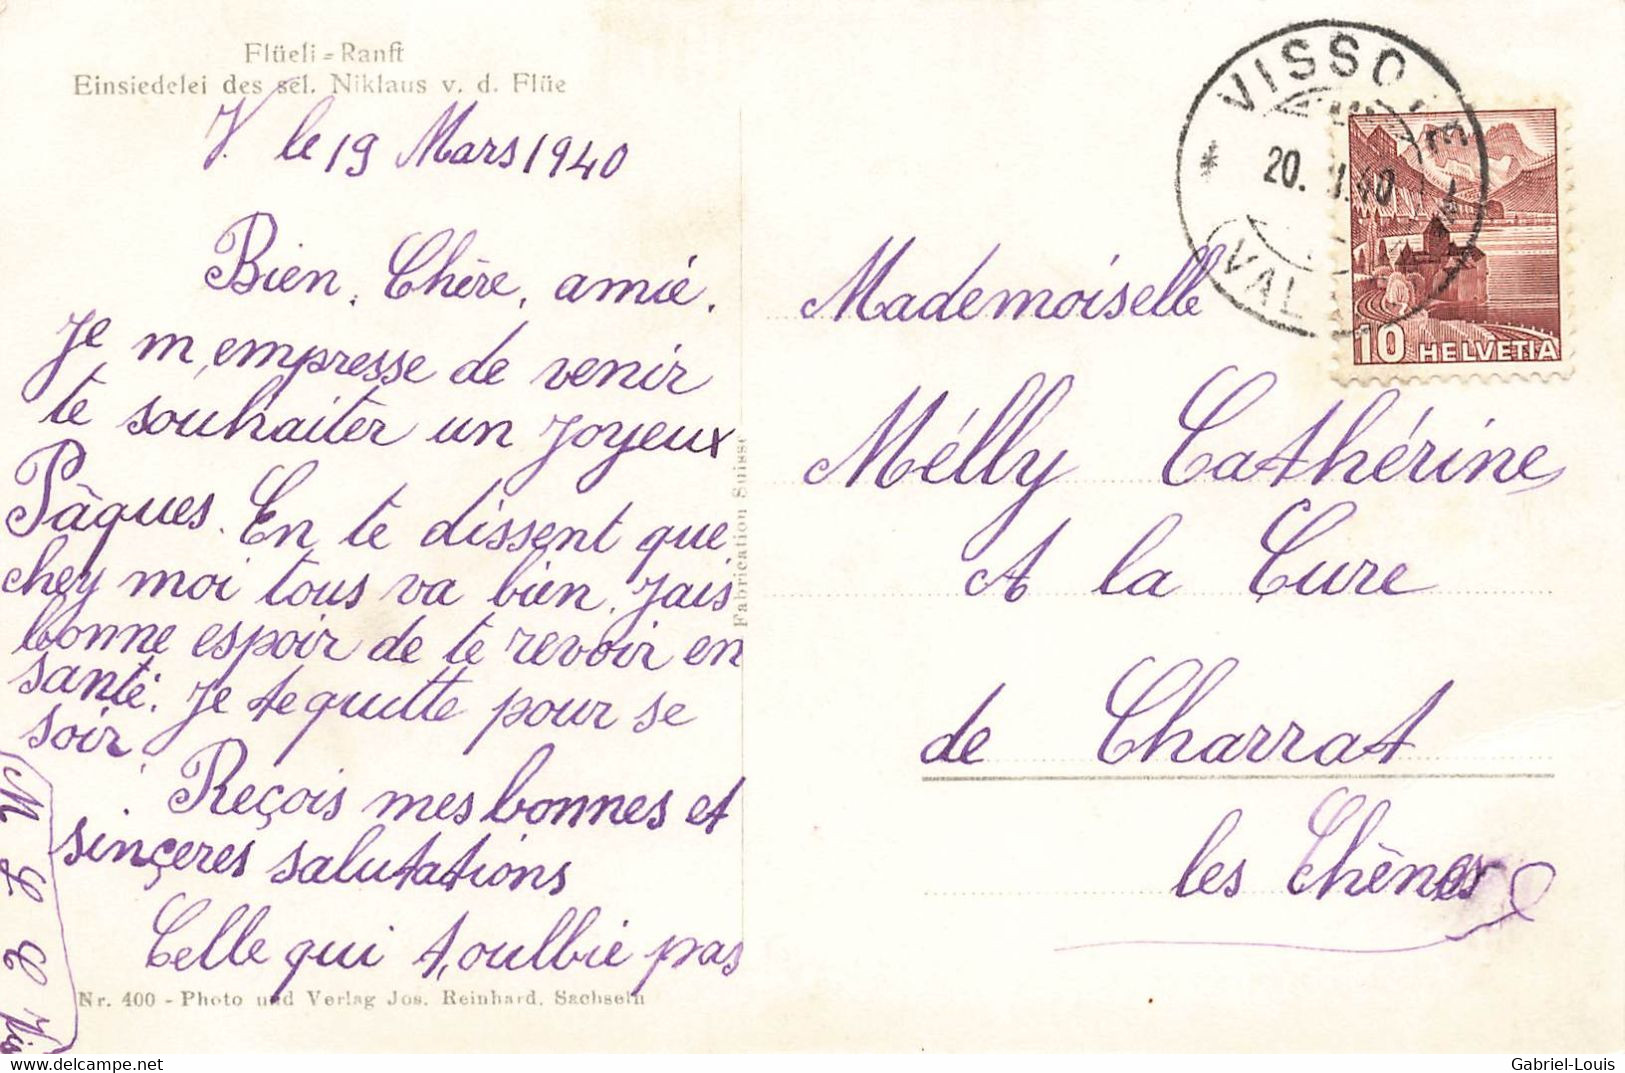 Flüeli-Ranft
Einsiedelei des sel. Niklaus v. d. Flüe
V. le 19 Mars 1940
Bien. Chère. amie.
Je m'empresse de venir
te souhaiter un Joyeux
Pâques. En te dissent que
chey moi tous va bien. Jais
bonne espoir de te revoir en
santé. Je te quitte pour se
soir.
Reçois mes bonnes et
sinçeres salutations
Celle qui t,oulbie pas
Nr. 400 - Photo und Verlag Jos. Reinhard, Sachseln
Fabrication Suisse
VISSO
20. 40
VAL
10 HELVETIA
Mademoiselle
Mélly Cathérine
A la Cure
de Charrat
les Chênes
www.delcampe.net
Gabriel-Louis